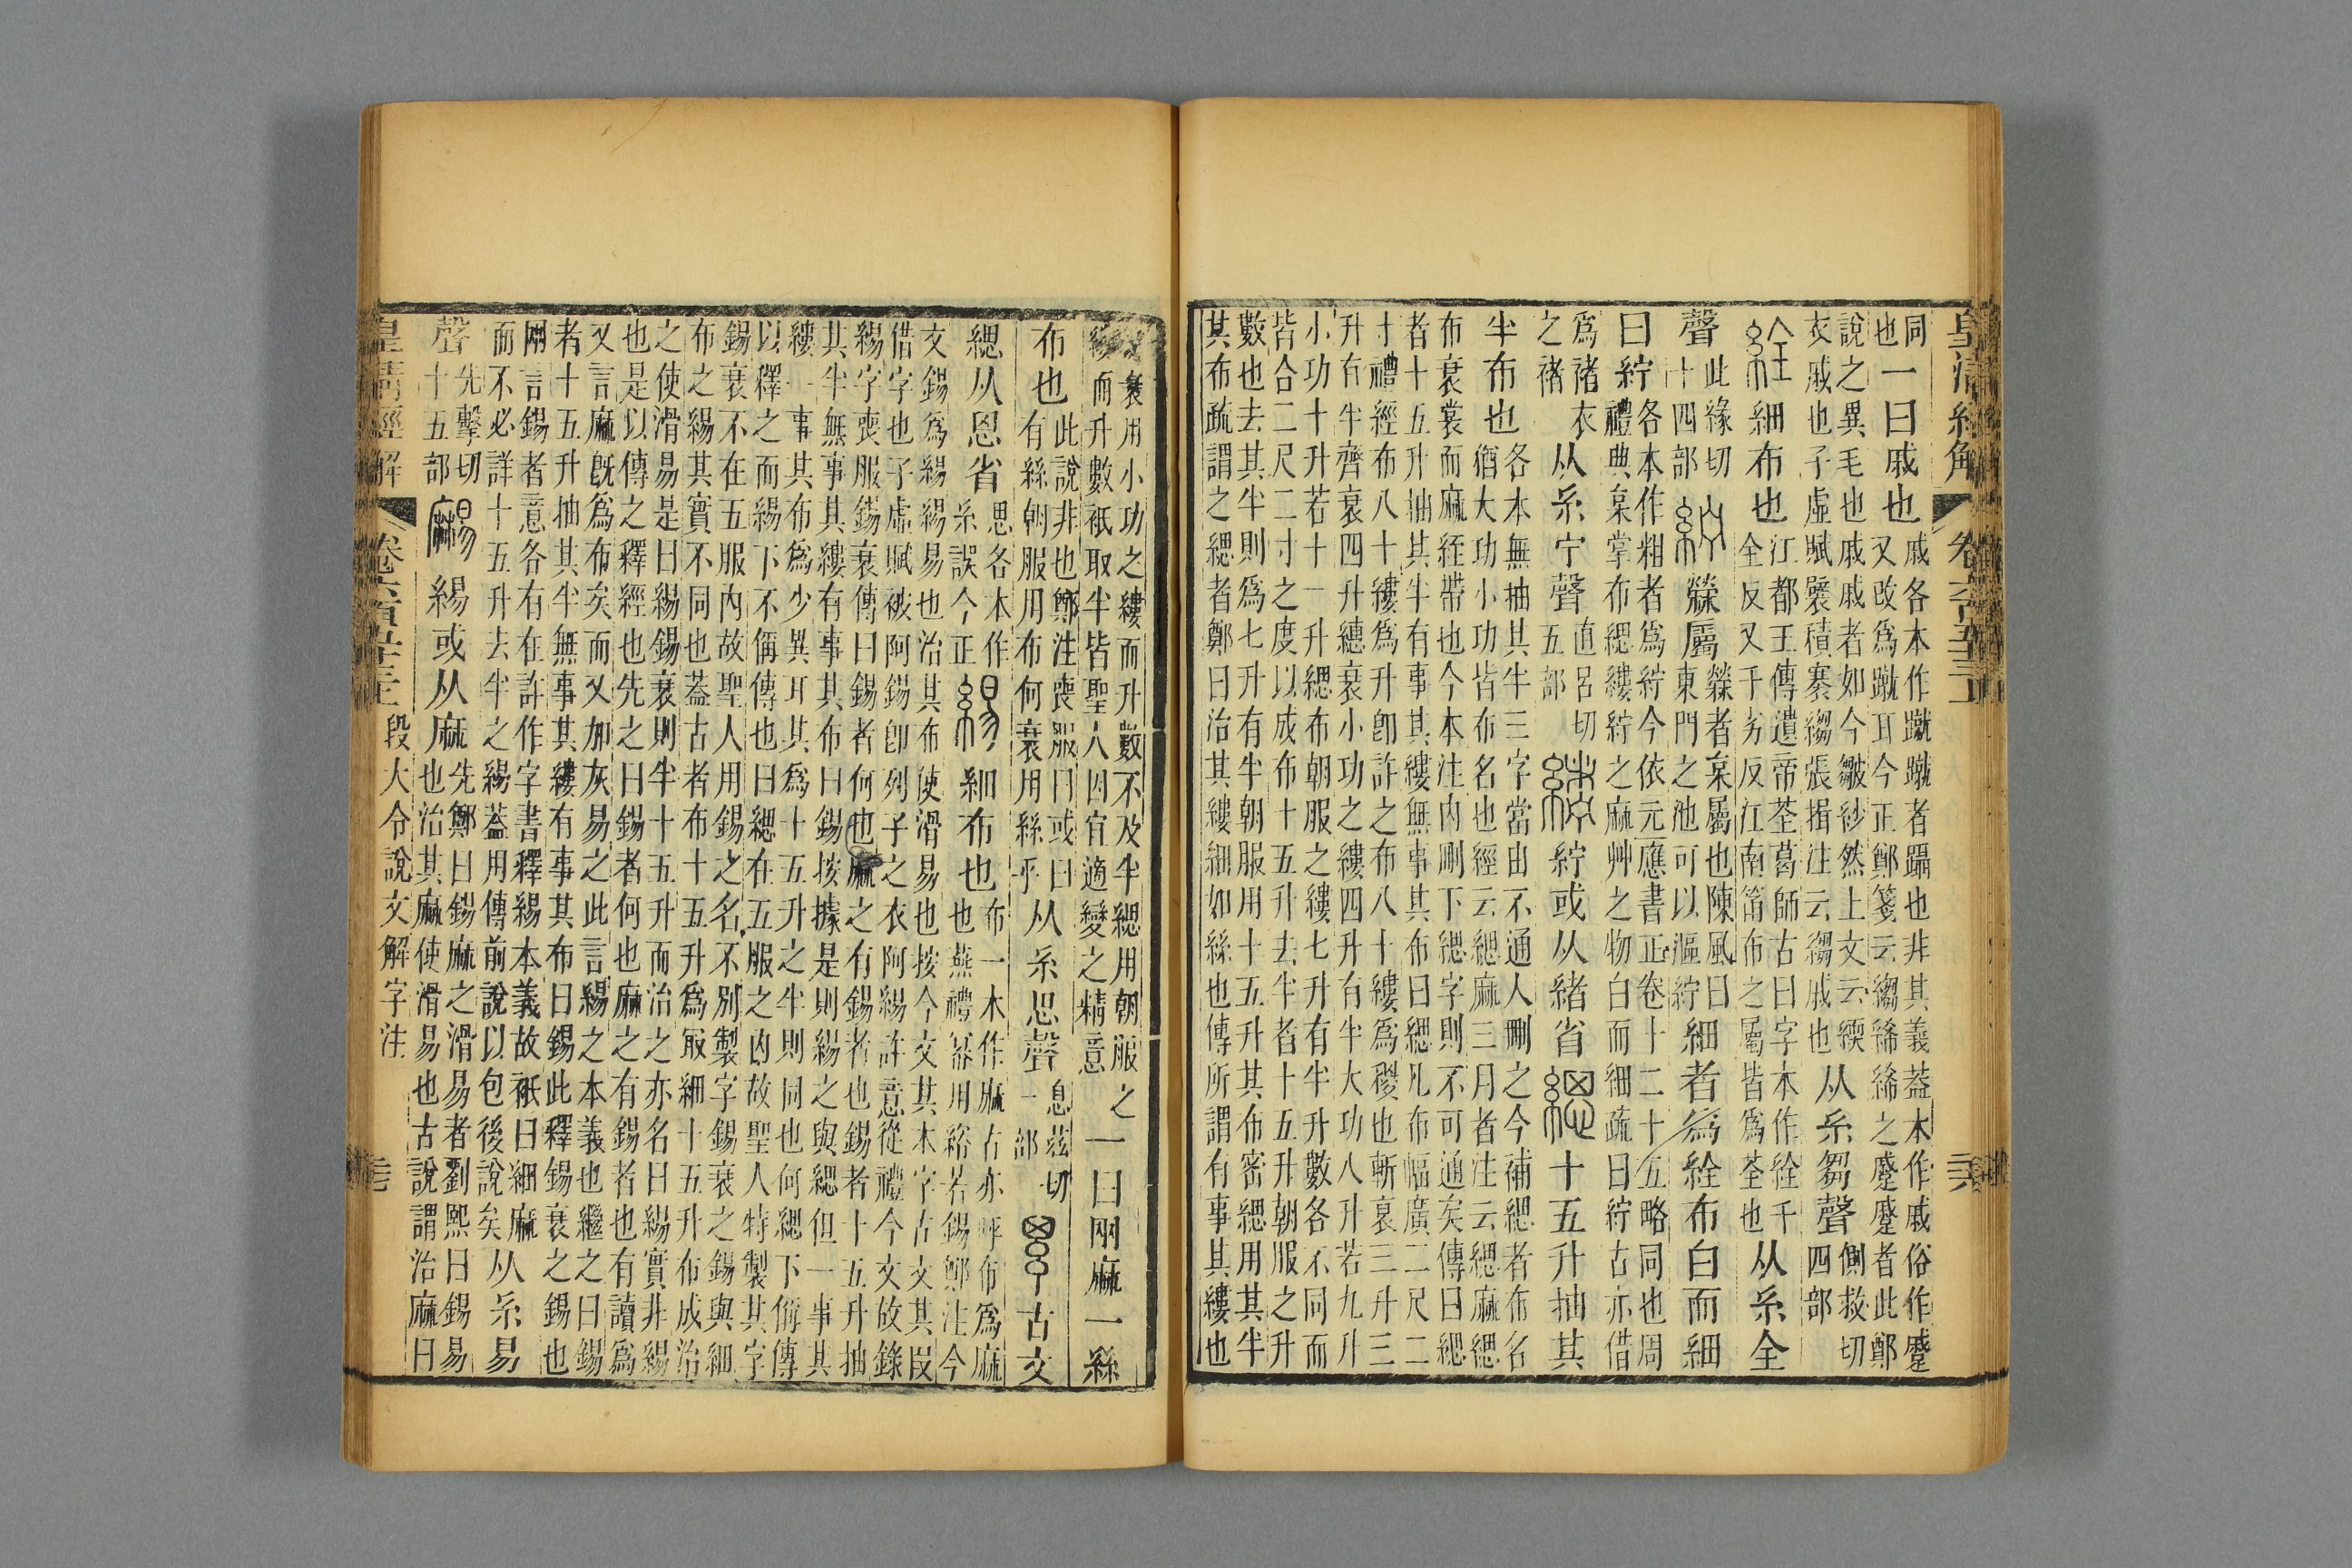 皇清經解 卷六百五十三
同
也
一曰戚也
戚各本作蹴蹴者躡也非其義蓋本作戚俗作蹙
又改爲蹴耳今正鄭箋云縐絺之蹙蹙者此鄭
說之異毛也戚戚者如今皺紗然上文云緛
衣戚也子虛賦襞積褰縐張揖注云縐戚也
从糸芻聲
側救切
四部
絟細布也
江都王傳遺帝荃葛師古曰字本作絟千
全反又千劣反江南筩布之屬皆爲荃也
从糸全
聲
此緣切
十四部
紵檾屬
檾者枲屬也陳風曰
東門之池可以漚紵
細者爲絟布白而細
曰紵
各本作粗者爲紵今依元應書正卷十二十五略同也周
禮典枲掌布緦縷紵之麻艸之物白而細疏曰紵古亦借
爲褚衣
之褚
从糸宁聲
直呂切
五部
䋡紵或从緒省
緦十五升抽其
半布也
各本無抽其半三字當由不通人刪之今補緦者布名
猶大功小功皆布名也經云緦麻三月者注云緦麻緦
布衰裳而麻絰帶也今本注內刪下緦字則不可通矣傳曰緦
者十五升抽其半有事其縷無事其布曰緦凡布幅廣二尺二
寸禮經布八十縷爲升卽許之布八十縷爲稯也斬衰三升三
升有半齊衰四升繐衰小功之縷四升有半大功八升若九升
小功十升若十一升緦布朝服之縷七升有半升數各不同而
皆合二尺二寸之度以成布十五升去半者十五升朝服之升
數也去其半則爲七升有半朝服用十五升其布密緦用其半
其布疏謂之緦者鄭曰治其縷細如絲也傳所謂有事其縷也
衰用小功之縷而升數不及半緦用朝服之
縷而升數衹取半皆聖人因宜適變之精意
一曰兩麻一絲
布也
此說非也鄭注喪服曰或曰
有絲朝服用布何衰用絲乎
从糸思聲
息茲切
一部
古文
緦从恩省
思各本作
糸誤今正
緆細布也
布一本作麻古亦呼布爲麻
也燕禮冪用綌若錫鄭注今
文錫爲緆緆易也治其布使滑易也按今文其本字古文其叚
借字也子虛賦被阿錫卽列子之衣阿緆許意從禮今文故錄
緆字喪服錫衰傳曰錫者何也麻之有錫者也錫者十五升抽
其半無事其縷有事其布曰錫按據是則緆之與緦但一事其
縷一事其布爲少異耳其爲十五升之半則同也何緦下偁傳
以釋之而緆下不偁傳也曰緦在五服之內故聖人特製其字
錫衰不在五服內故聖人用錫之名不別製字錫衰之錫與細
布之緆其實不同也蓋古者布十五升爲㝡細十五升布成治
之使滑易是曰緆錫衰則半十五升而治之亦名曰緆實非緆
也是以傳之釋經也先之曰錫者何也麻之有錫者也有讀爲
又言麻旣爲布矣而又加灰易之此言緆之本義也繼之曰錫
者十五升抽其半無事其縷有事其布曰錫此釋錫衰之錫也
兩言錫者意各有在許作字書釋緆本義故衹曰細麻
而不必詳十五升去半之緆蓋用傳前說以包後說矣
从糸易
聲
先擊切
十五部
䴬緆或从麻
先鄭曰錫麻之滑易者劉熙曰錫易
也治其麻使滑易也古說謂治麻曰
皇清經解 卷六百五十三 段大令說文解字注